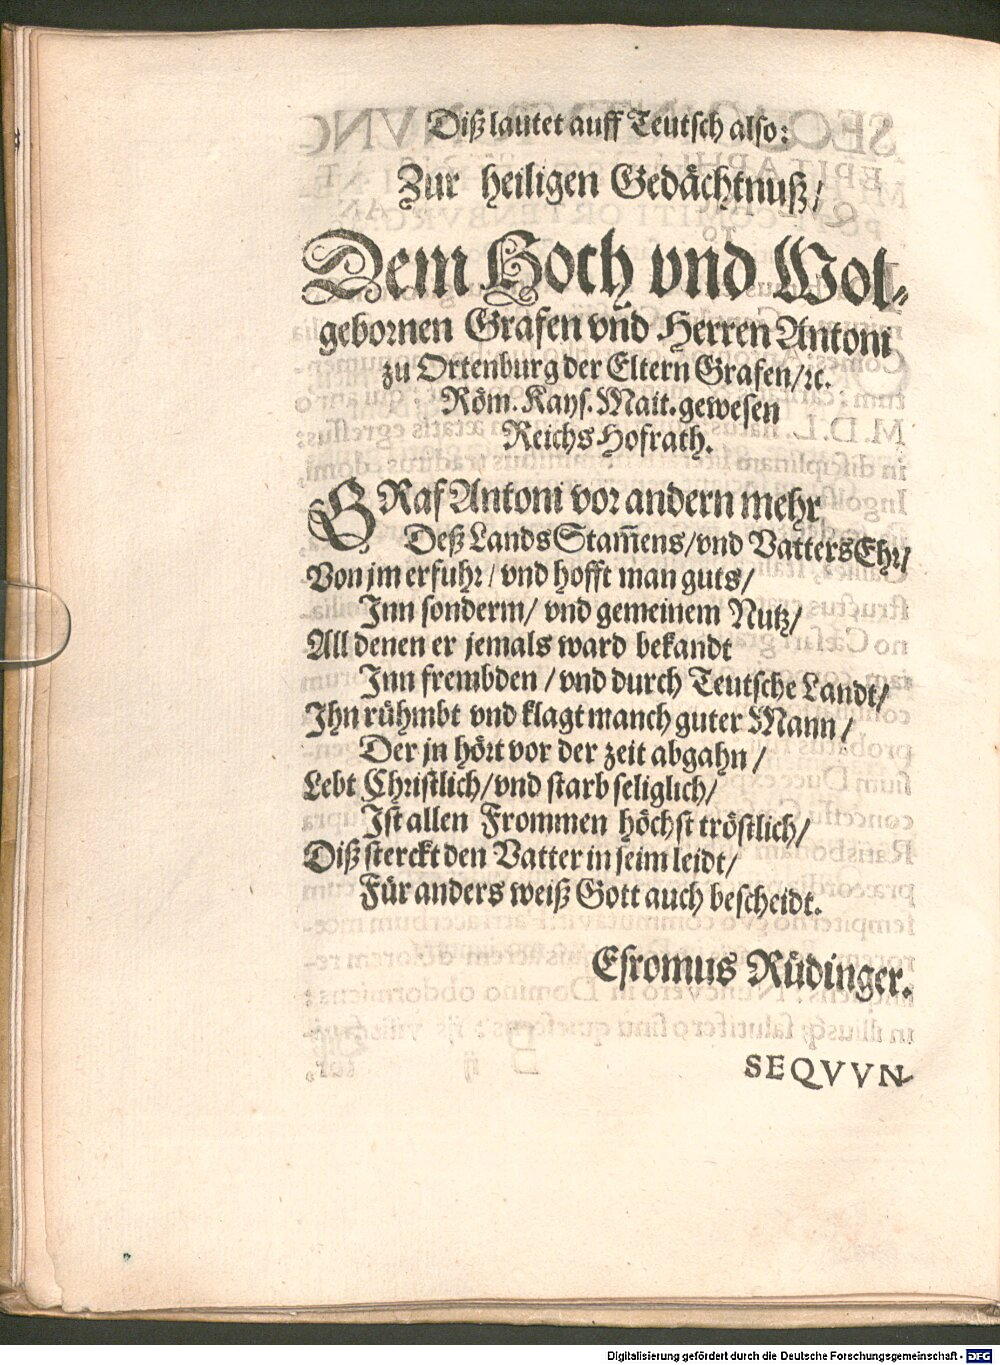 Diß lautet auff Teutsch also:
Zur heiligen Gedächtnuß/
Dem Hoch vnd Wol-
gebornen Grafen vnd Herren Antoni
zu Ortenburg der Eltern Grafen/ꝛc.
Röm. Kays. Mait. gewesen
Reichs Hofrath.
GRaf Antoni vor andern mehr
Deß Lands Stam̃ens/vnd Vatters Ehr/
Von jm erfuhr/ vnd hofft man guts/
Inn sonderm/ vnd gemeinem Nutz/
All denen er jemals ward bekandt
Inn frembden/ vnd durch Teutsche Landt/
Ihn rühmbt vnd klagt manch guter Mann/
Der jn hört vor der zeit abgahn/
Lebt Christlich/vnd starb seliglich/
Ist allen Frommen höchst tröstlich/
Diß sterckt den Vatter in seim leidt/
Für anders weiß Gott auch bescheidt.
Esromus Rüdinger.
SEQVVN-
Digitalisierung gefördert durch die Deutsche Forschungsgemeinschaft - DFG